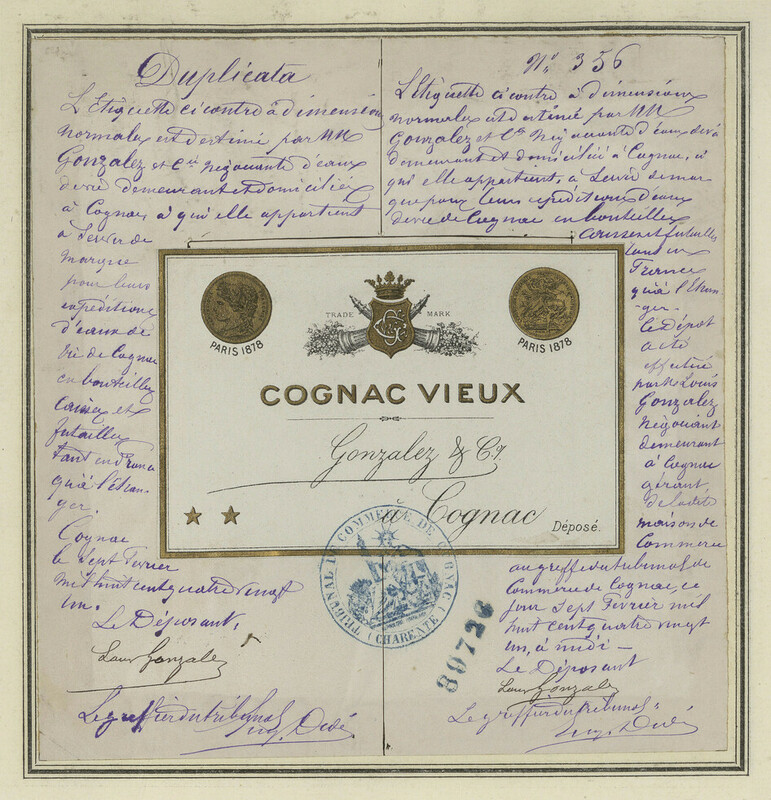 Duplicata
L'Etiquette ci contre à dimension
normale et destinée par MM
Gonzalez et Cie Négociants d'eaux
de vie demeurant et domiciliés
à Cognac, à qui elle appartient
à servir de
marque
pour leurs
expéditions
d'eaux de
vie de Cognac
en bouteilles
caisses et
futailles
tant en France
qu'à l'étran-
ger.
Cognac
le Sept Fevrier
mil huit cent quatre vingt
un.
Le Déposant,
Louis Gonzalez
Le greffier du tribunal
Eug. Dedé
No 356
L'Etiquette ci contre à dimensions
normales et destinée par MM
Gonzalez et Cie Négociants d'eaux de vie
demeurant et domiciliés à Cognac, à
qui elle appartient, à servir de mar
que pour leurs expéditions d'eaux
de vie de Cognac en bouteilles
caisses et futailles
tant en
France
qu'à l'étran-
ger.
Ce Dépôt
a été
effectué
par Mr Louis
Gonzalez
Négociant
demeurant
à Cognac
gérant
de la dite
maison de
Commerce
au greffe du tribunal de
Commerce de Cognac, ce
jour Sept Février mil
huit cent quatre vingt
un, à midi —
Le Déposant
Louis Gonzalez
Le greffier du tribunal
Eug. Dedé
TRADE MARK
PARIS 1878
PARIS 1878
COGNAC VIEUX
Gonzalez & Cie
à Cognac
Déposé.
TRIBUNAL DE COMMERCE DE COGNAC
(CHARENTE)
80726